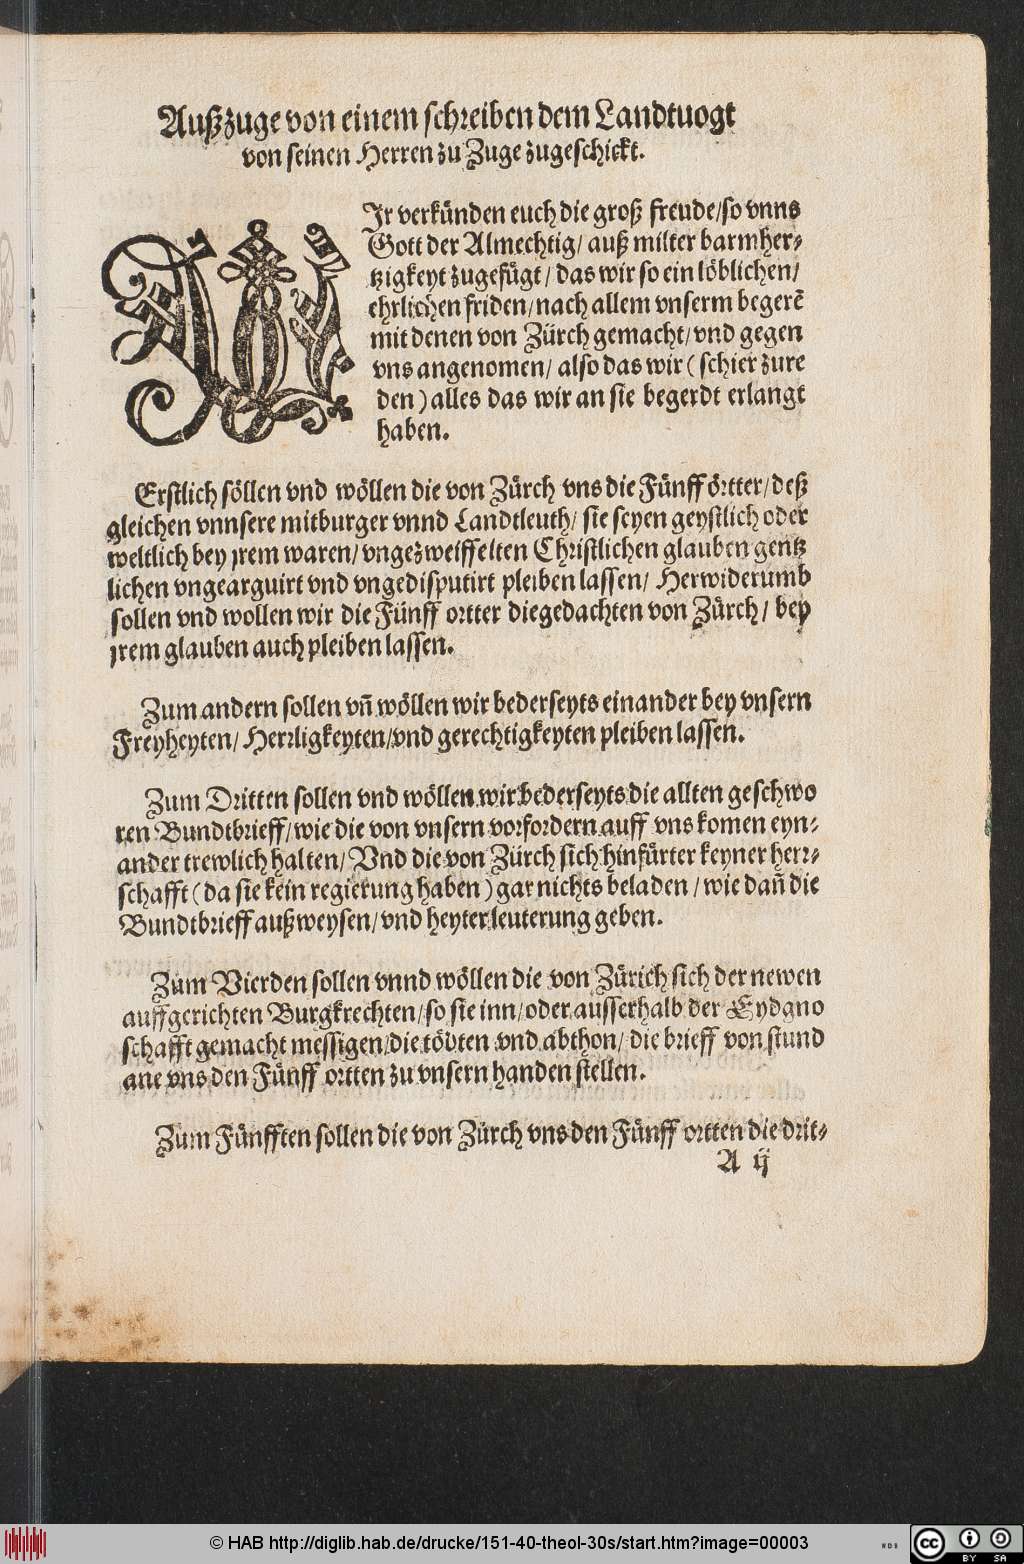 Außzuge von einem schreiben dem Landtuogt
von seinen Herren zu Zuge zugeschickt.
WJr verkünden euch die groß freude/so vnns
Gott der Almechtig/ auß milter barmher⸗
tzigkeyt zugefügt/ das wir so ein löblichen/
ehrlichen friden/nach allem vnserm begerē
mit denen von Zürch gemacht/vnd gegen
vns angenomen/ also das wir (schier zure
den) alles das wir an sie begerdt erlangt
haben.
Erstlich söllen vnd wöllen die von Zürch vns die Fünff örtter/deß
gleichen vnnsere mitburger vnnd Landtleuth/ sie seyen geystlich oder
weltlich bey jrem waren/ vngezweiffelten Christlichen glauben gentz
lichen vngearguirt vnd vngedisputirt pleiben lassen/ Herwiderumb
sollen vnd wollen wir die Fünff ortter diegedachten von Zürch/ bey
jrem glauben auch pleiben lassen.
Zum andern sollen vn̄ wöllen wir bederseyts einander bey vnsern
Freyheyten/ Herrligkeyten/vnd gerechtigkeyten pleiben lassen.
Zum Dritten sollen vnd wöllen wir bederseyts die allten geschwo
ren Bundtbrieff/wie die von vnsern vorfordern auff vns komen eyn⸗
ander trewlich halten/ Vnd die von Zürch sich hinfürter keyner herr⸗
schafft (da sie kein regierung haben) gar nichts beladen /wie dan̄ die
Bundtbrieff außweysen/vnd heyter leuterung geben.
Zum Vierden sollen vnnd wöllen die von Zürich sich der newen
auffgerichten Burgkrechten/so sie inn/oder ausserhalb der Eydgno
schafft gemacht messigen/die tödten vnd abthon/ die brieff von stund
ane vns den Fünff ortten zu vnsern handen stellen.
Zum Fünfften sollen die von Zürch vns den Fünff ortten die drit⸗
A ij
© HAB http://diglib.hab.de/drucke/151-40-theol-30s/start.htm?image=00003
WDB
CC BY SA